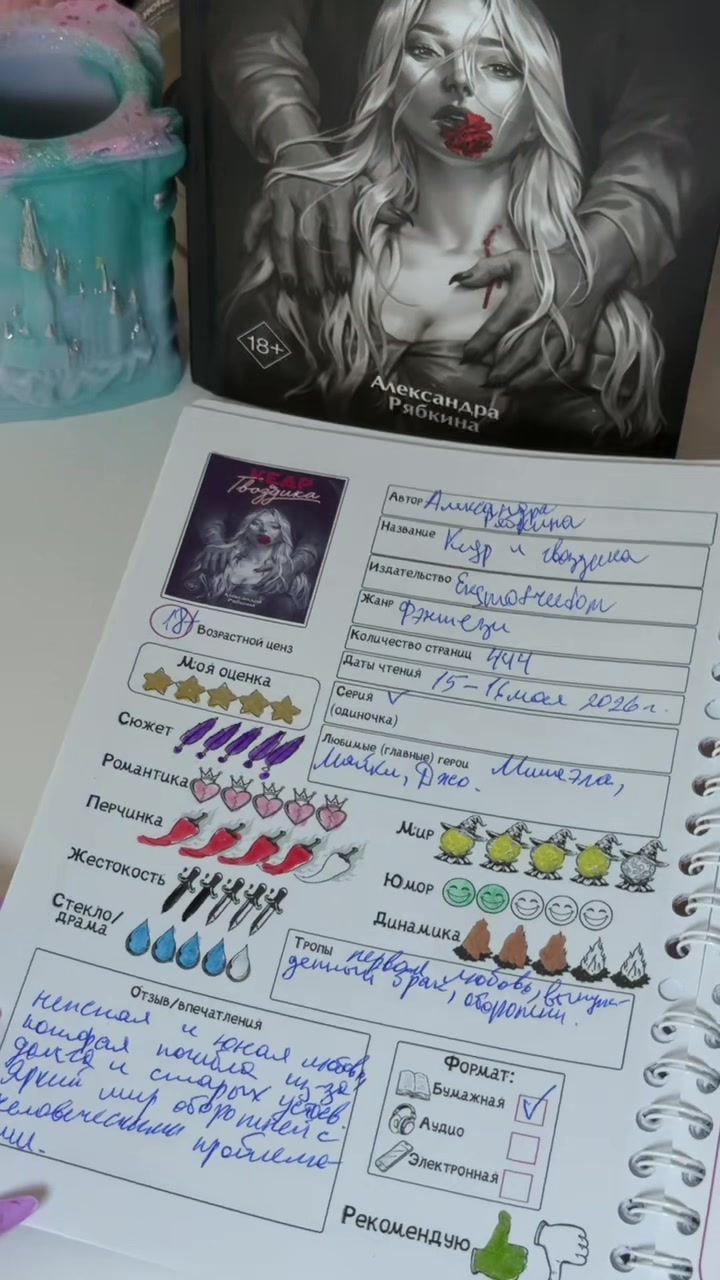 18+
Александра
Рябкина
КЕДР
Гвоздика
Александра
Рябкина
18+ Возрастной ценз
Моя оценка
Сюжет
Романтика
Перчинка
Жестокость
Стекло/
драма
Автор Александра
Рябкина
Название Кедр и гвоздика
Издательство
Жанр Фэнтези
Количество страниц 444
Даты чтения 15-16 мая 2026 г.
Серия
(одиночка)
Любимые (главные) герои Мишаэла,
Майкл, Джо.
Мир
Юмор
Динамика
Тропы первая любовь, вынуж-
денный брак, оборотни.
Отзыв/впечатления
и юная любовь,
которая погибла из-за
долга и старых устоев.
Яркий мир оборотней с
человеческими проблема-
ми.
Формат:
Бумажная
Аудио
Электронная
Рекомендую